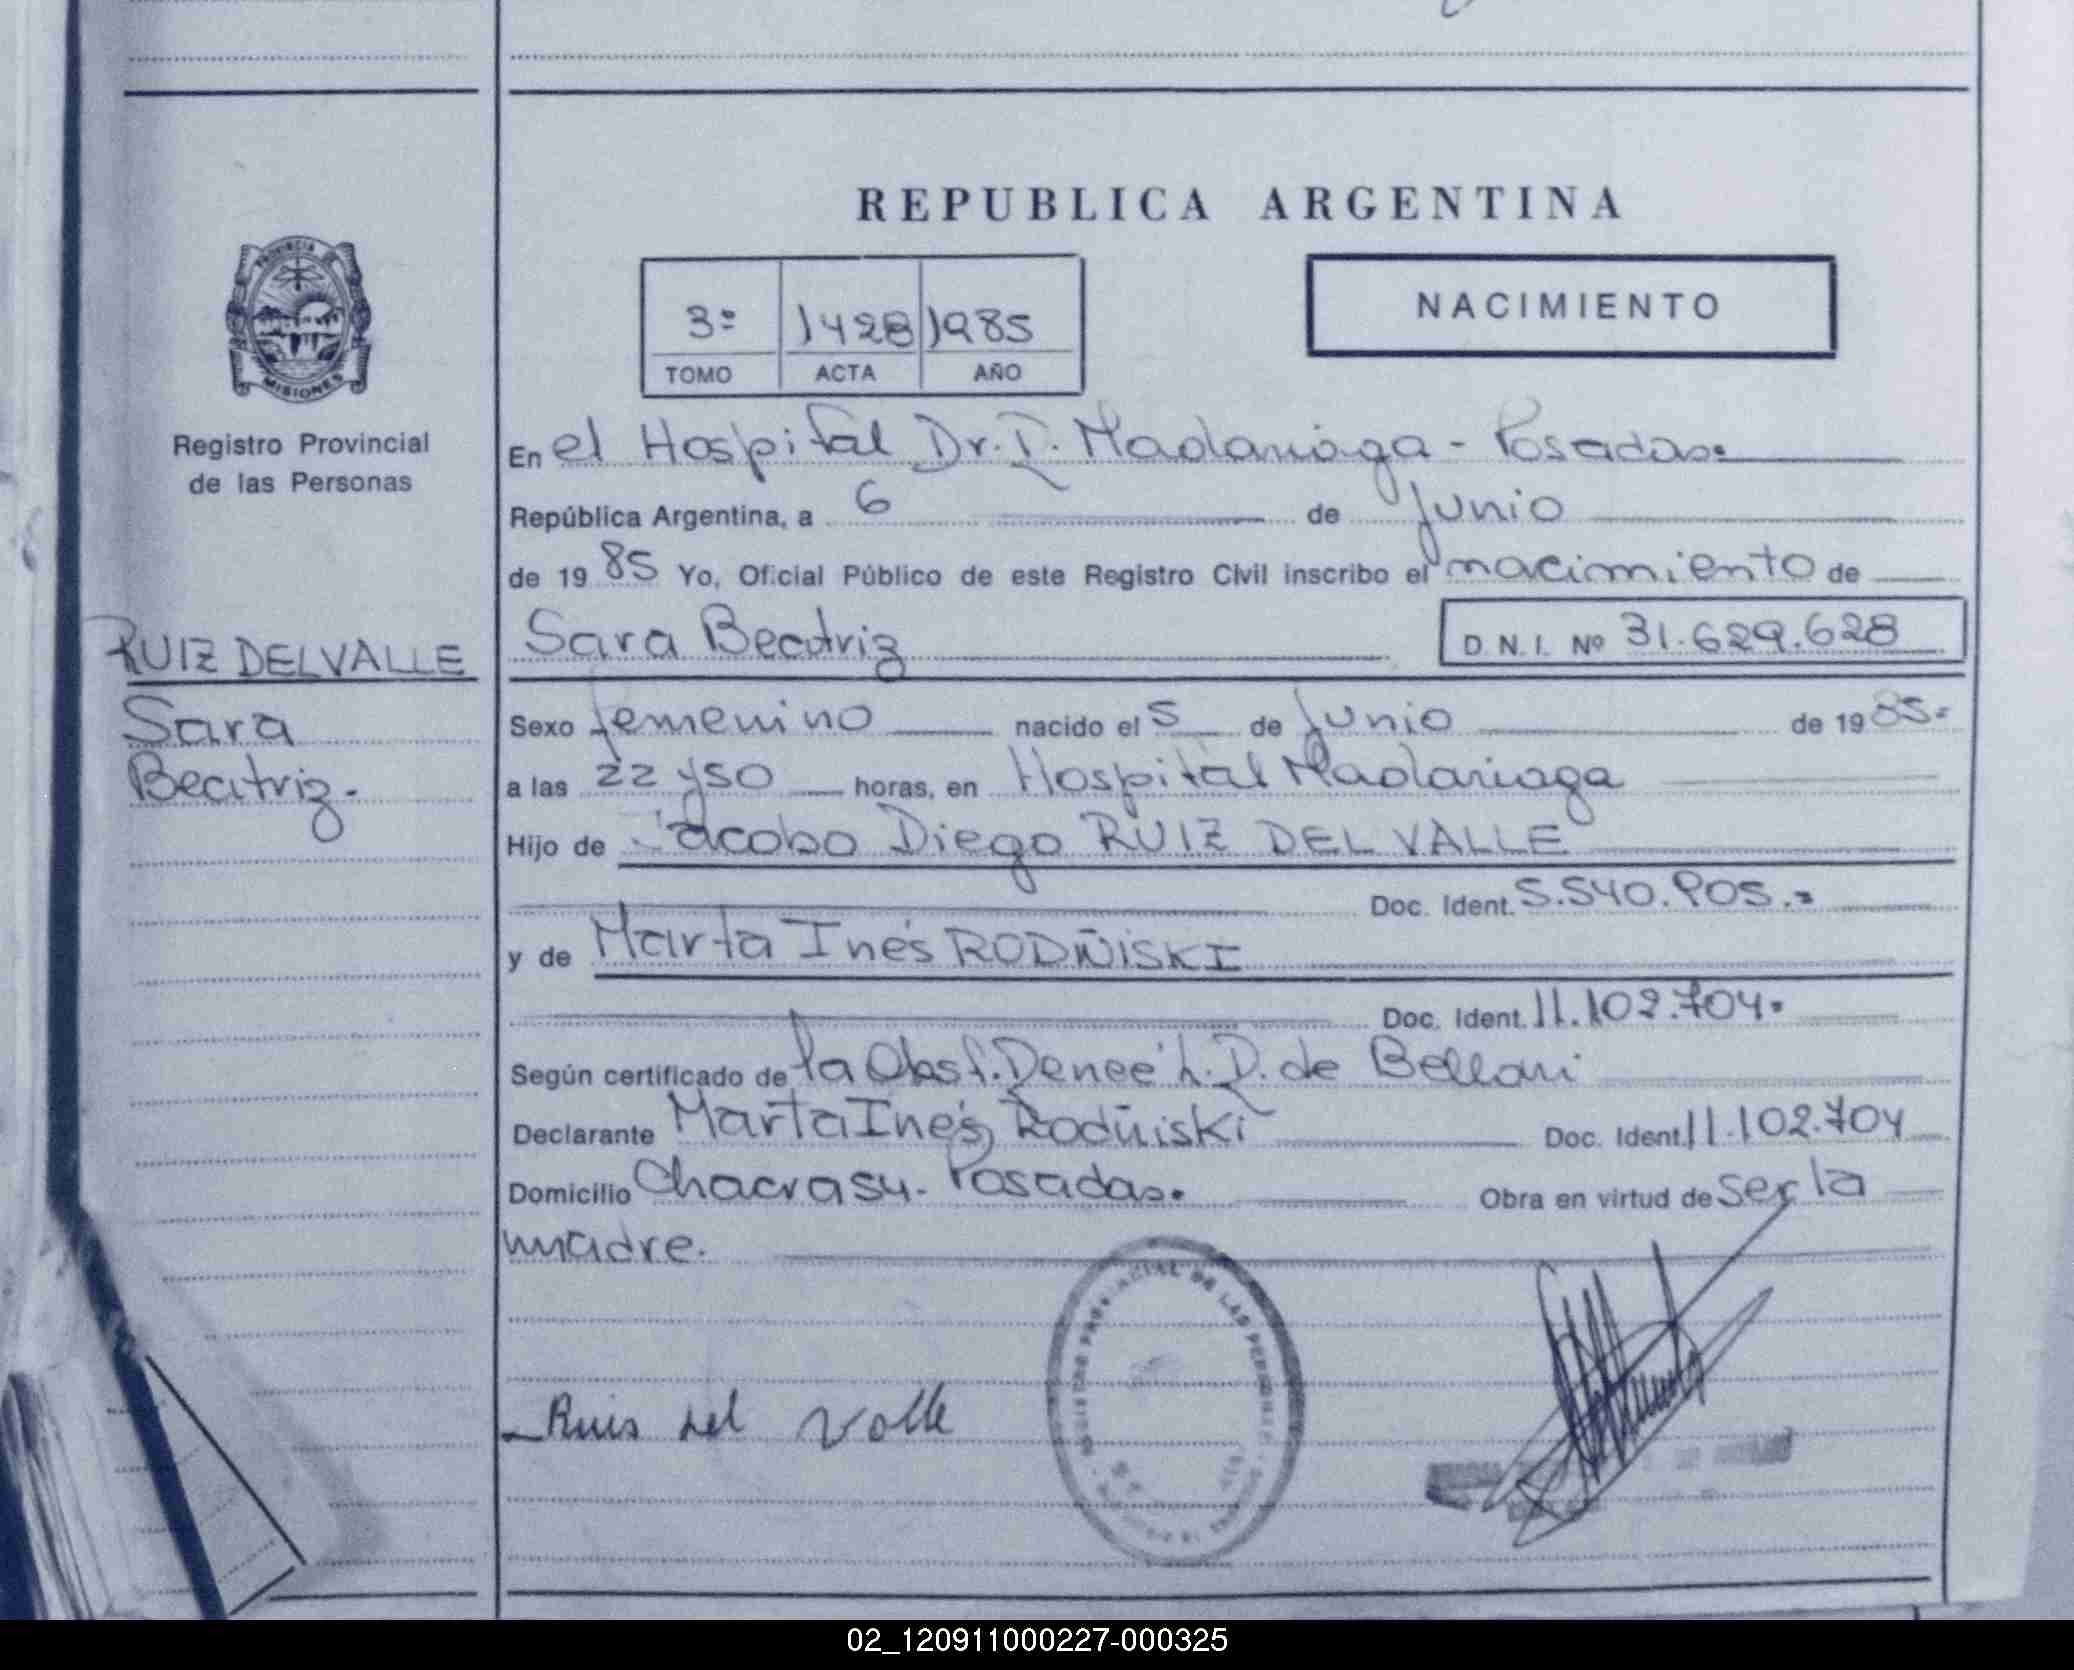 REPUBLICA ARGENTINA
PROVINCIA DE
MISIONES
Registro Provincial
de las Personas
3º 1428 1985
TOMO ACTA AÑO
NACIMIENTO
En el Hospital Dr. R. Madariaga - Posadas.
República Argentina, a 6 de Junio
de 1985 Yo, Oficial Público de este Registro Civil inscribo el nacimiento de
Sara Beatriz D.N.I. Nº 31.629.628
RUIZ DEL VALLE
Sara
Beatriz.
Sexo femenino nacido el 5 de Junio de 1985.
a las 22 y 50 horas, en Hospital Madariaga
Hijo de Jacobo Diego RUIZ DEL VALLE
Doc. Ident. 5.540.905.
y de Marta Inés RODÑISKI
Doc. Ident. 11.102.704.
Según certificado de la Obst. L. D. de
Declarante Marta Inés Rodñiski Doc. Ident 11.102.704
Domicilio Chacra 54. Posadas. Obra en virtud de ser la
madre.
REGISTRO PROVINCIAL DE LAS PERSONAS
Ruis del Valle
02_120911000227-000325